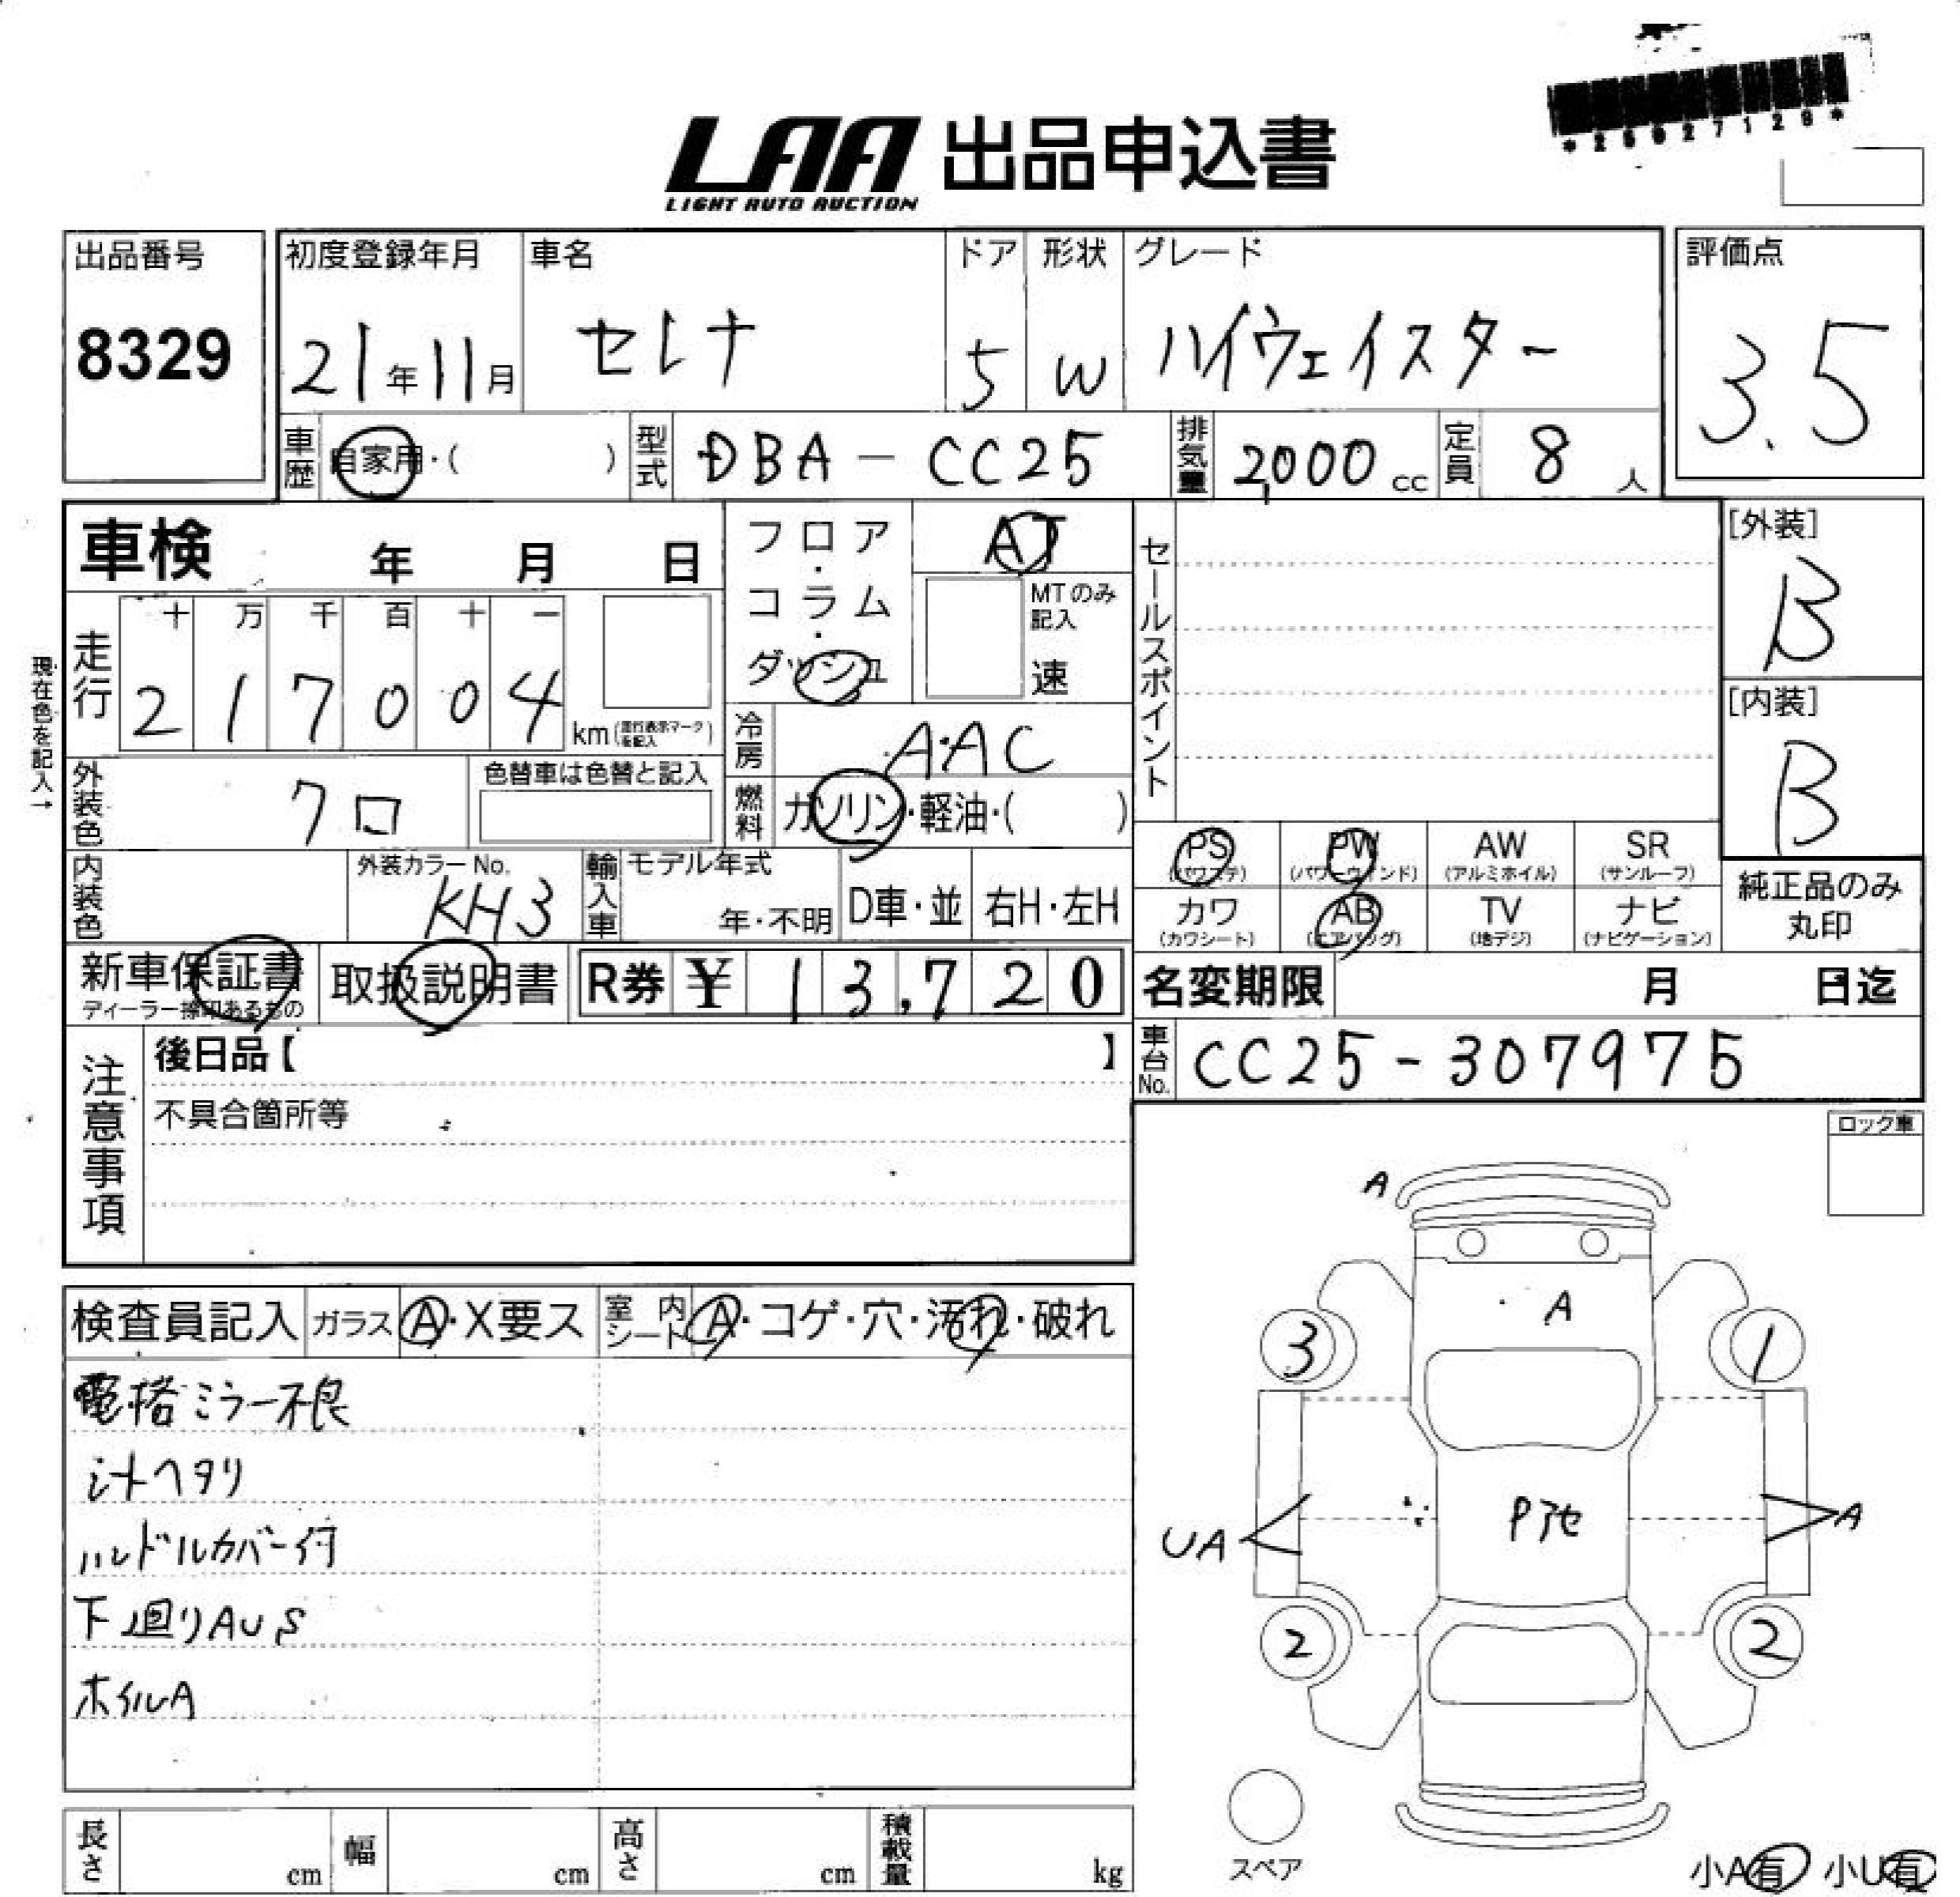 LAA 出品申込書
LIGHT AUTO AUCTION
出品番号
8329
初度登録年月
21年11月
車名
セレナ
ドア
5
形状
W
グレード
ハイウェイスター
評価点
3.5
車歴
自家用・( )
型式
DBA-CC25
排気量
2,000 cc
定員
8 人
車検 年 月 日
フロア・コラム・ダッシュ
AT
MTのみ記入
速
セールスポイント
[外装]
B
[内装]
B
現在色を記入→
走行
十 万 千 百 十 一
2 1 7 0 0 4
km(走行表示マークを記入)
冷房
AAC
燃料
ガソリン・軽油・( )
外装色
クロ
色替車は色替と記入
内装色
外装カラーNo.
KH3
輸入車
モデル年式
年・不明
D車・並
右H・左H
PS (パワステ)
PW (パワーウインド)
AW (アルミホイル)
SR (サンルーフ)
カワ (カワシート)
AB (エアバッグ)
TV (地デジ)
ナビ (ナビゲーション)
純正品のみ丸印
新車保証書
ディーラー捺印あるもの
取扱説明書
R券 ¥ 13,720
名変期限 月 日迄
車台No.
CC25-307975
注意事項
後日品【 】
不具合箇所等
ロック車
検査員記入
ガラス
A・X要ス
室内シート
A・コゲ・穴・汚れ・破れ
電格ミラー不良
シートヘタリ
ハンドルカバー付
下廻りAUS
ホイルA
A
A
3
1
UA
A
2
2
スペア
小A有 小U有
長さ cm
幅 cm
高さ cm
積載量 kg